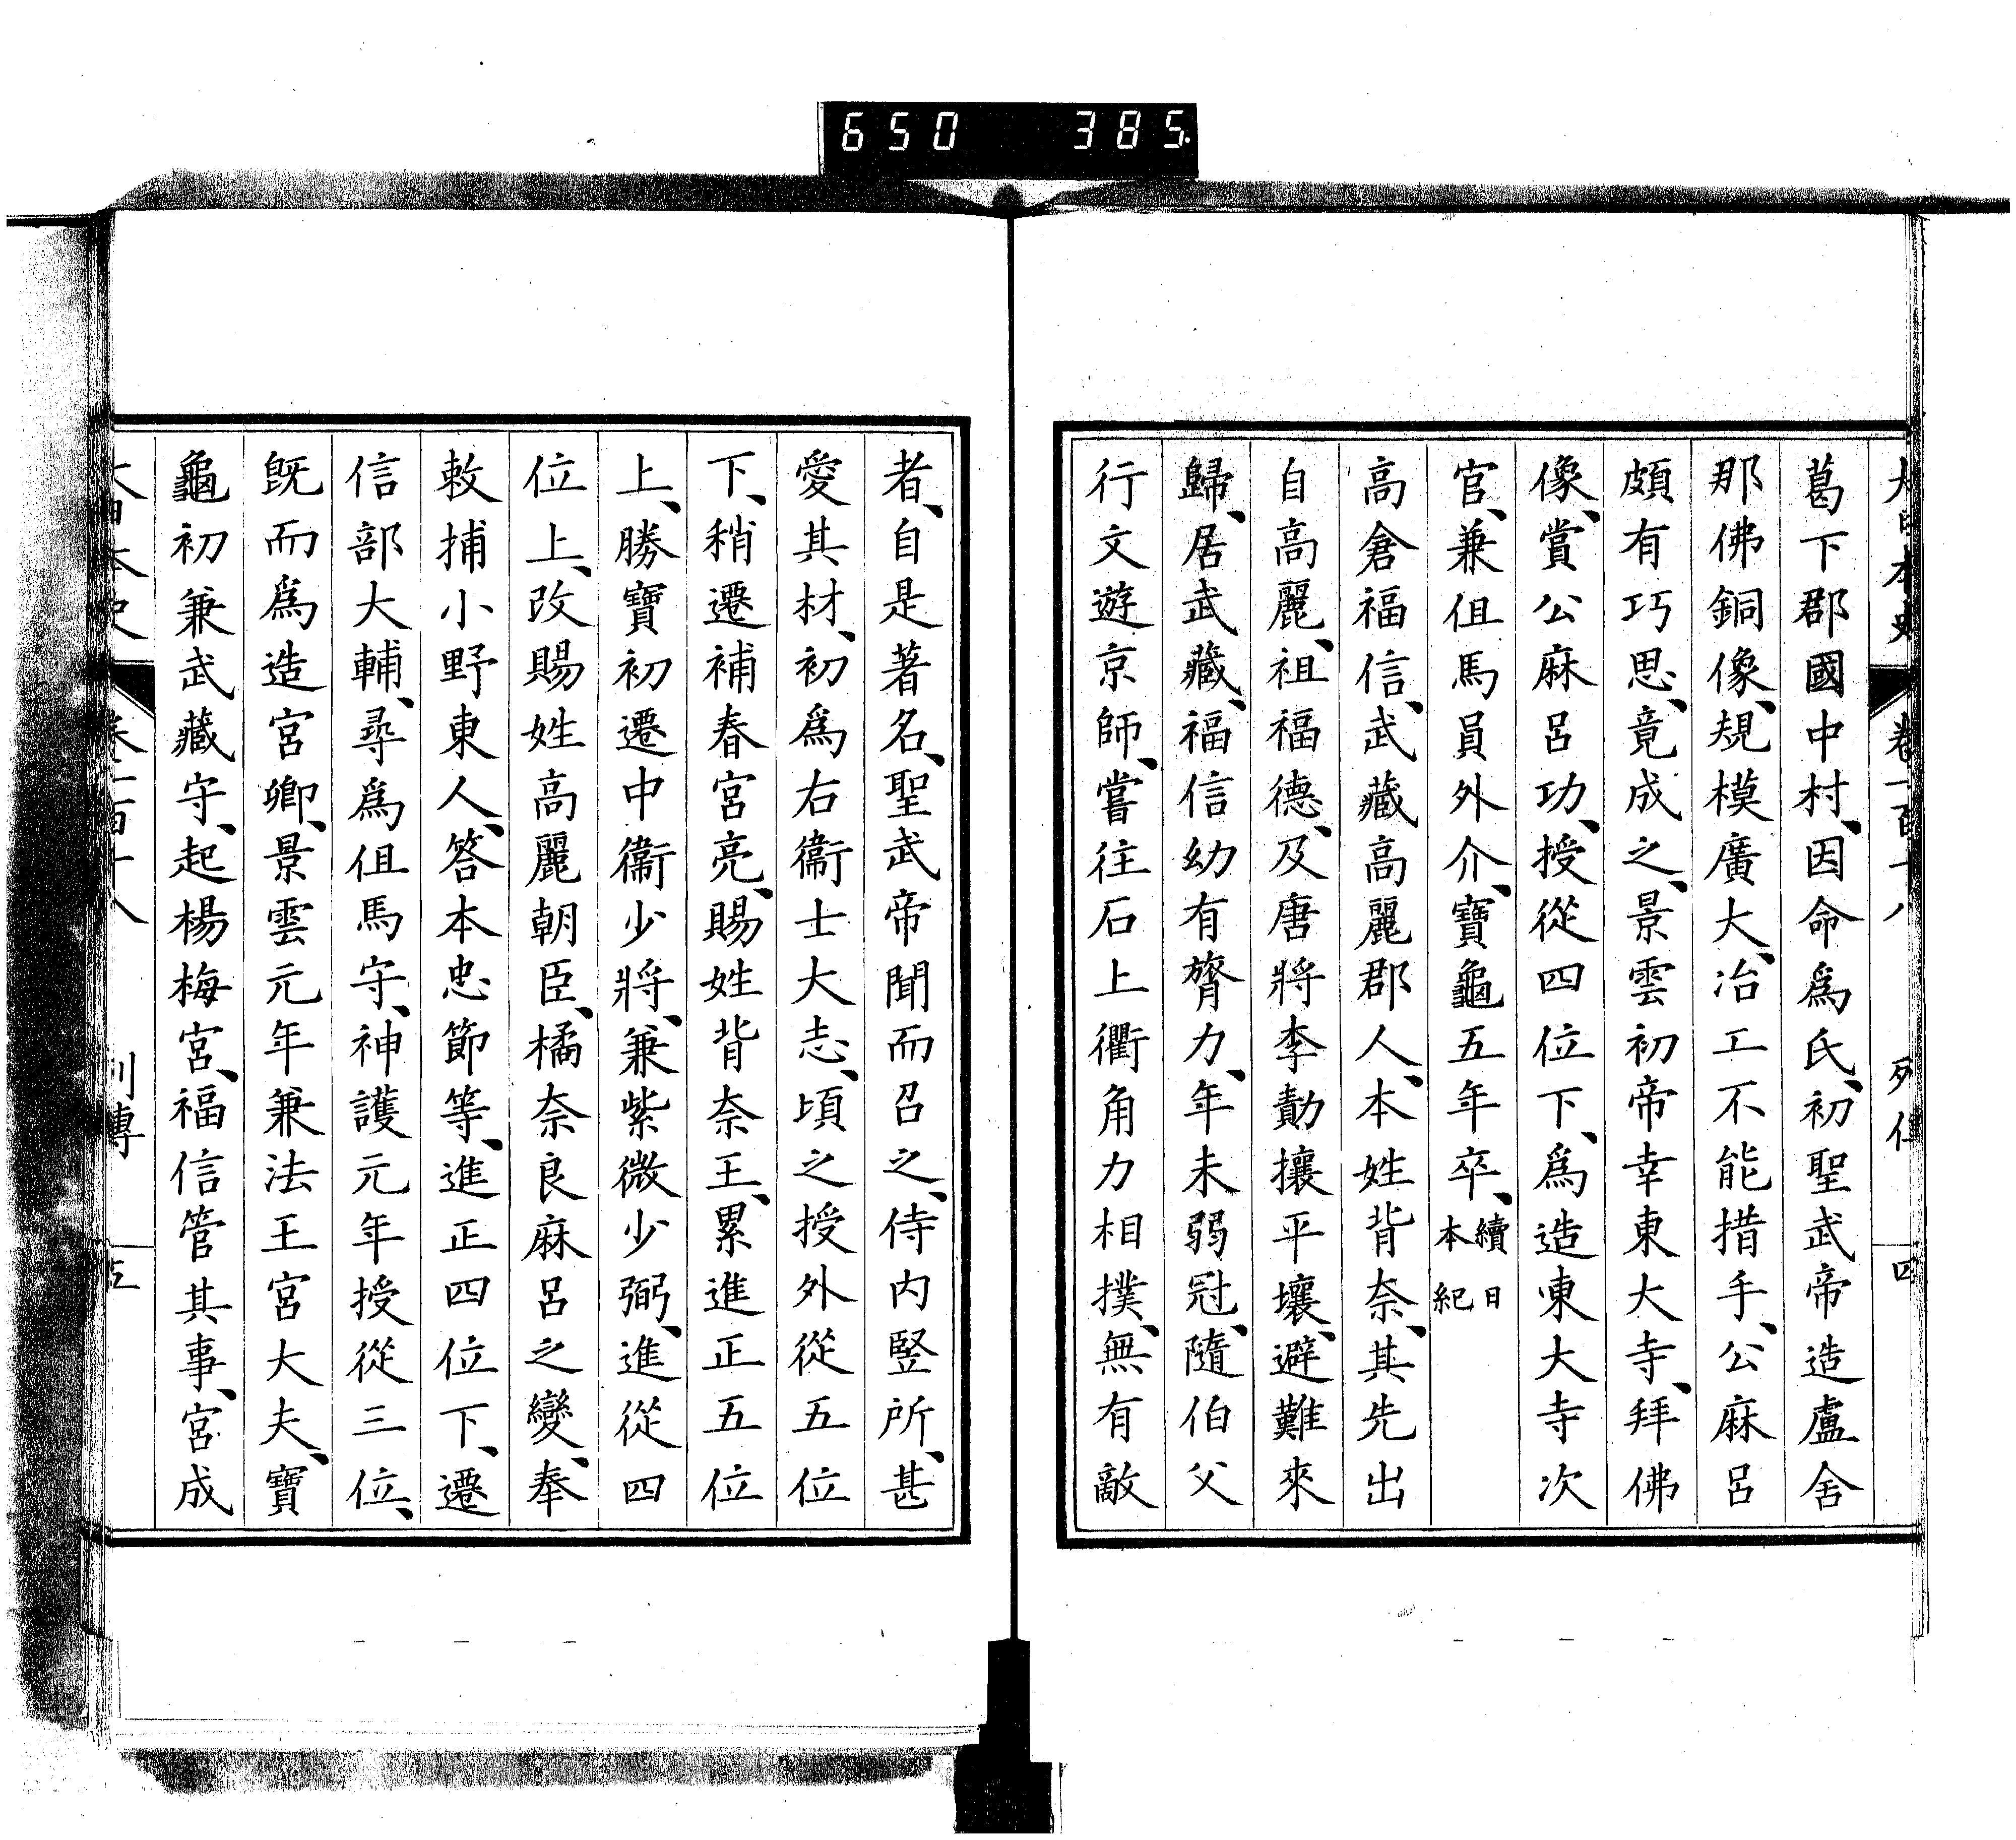 650 385
大日本史 卷一百十八 列傳 四
葛下郡國中村、因命爲氏、初聖武帝造盧舍
那佛銅像、規模廣大、冶工不能措手、公麻呂
頗有巧思、竟成之、景雲初帝幸東大寺、拜佛
像、賞公麻呂功、授從四位下、爲造東大寺次
官、兼伹馬員外介、寶龜五年卒、續日本紀
高倉福信、武藏高麗郡人、本姓背奈、其先出
自高麗、祖福德、及唐將李勣攘平壤、避難來
歸、居武藏、福信幼有膂力、年未弱冠、隨伯父
行文遊京師、嘗往石上衢角力相撲、無有敵
者、自是著名、聖武帝聞而召之、侍内竪所、甚
愛其材、初爲右衞士大志、頃之授外從五位
下、稍遷補春宮亮、賜姓背奈王、累進正五位
上、勝寶初遷中衞少將、兼紫微少弼、進從四
位上、改賜姓高麗朝臣、橘奈良麻呂之變、奉
敕捕小野東人、答本忠節等、進正四位下、遷
信部大輔、尋爲伹馬守、神護元年授從三位、
旣而爲造宮卿、景雲元年兼法王宮大夫、寶
龜初兼武藏守、起楊梅宮、福信管其事、宮成
大日本史 卷一百十八 列傳 五